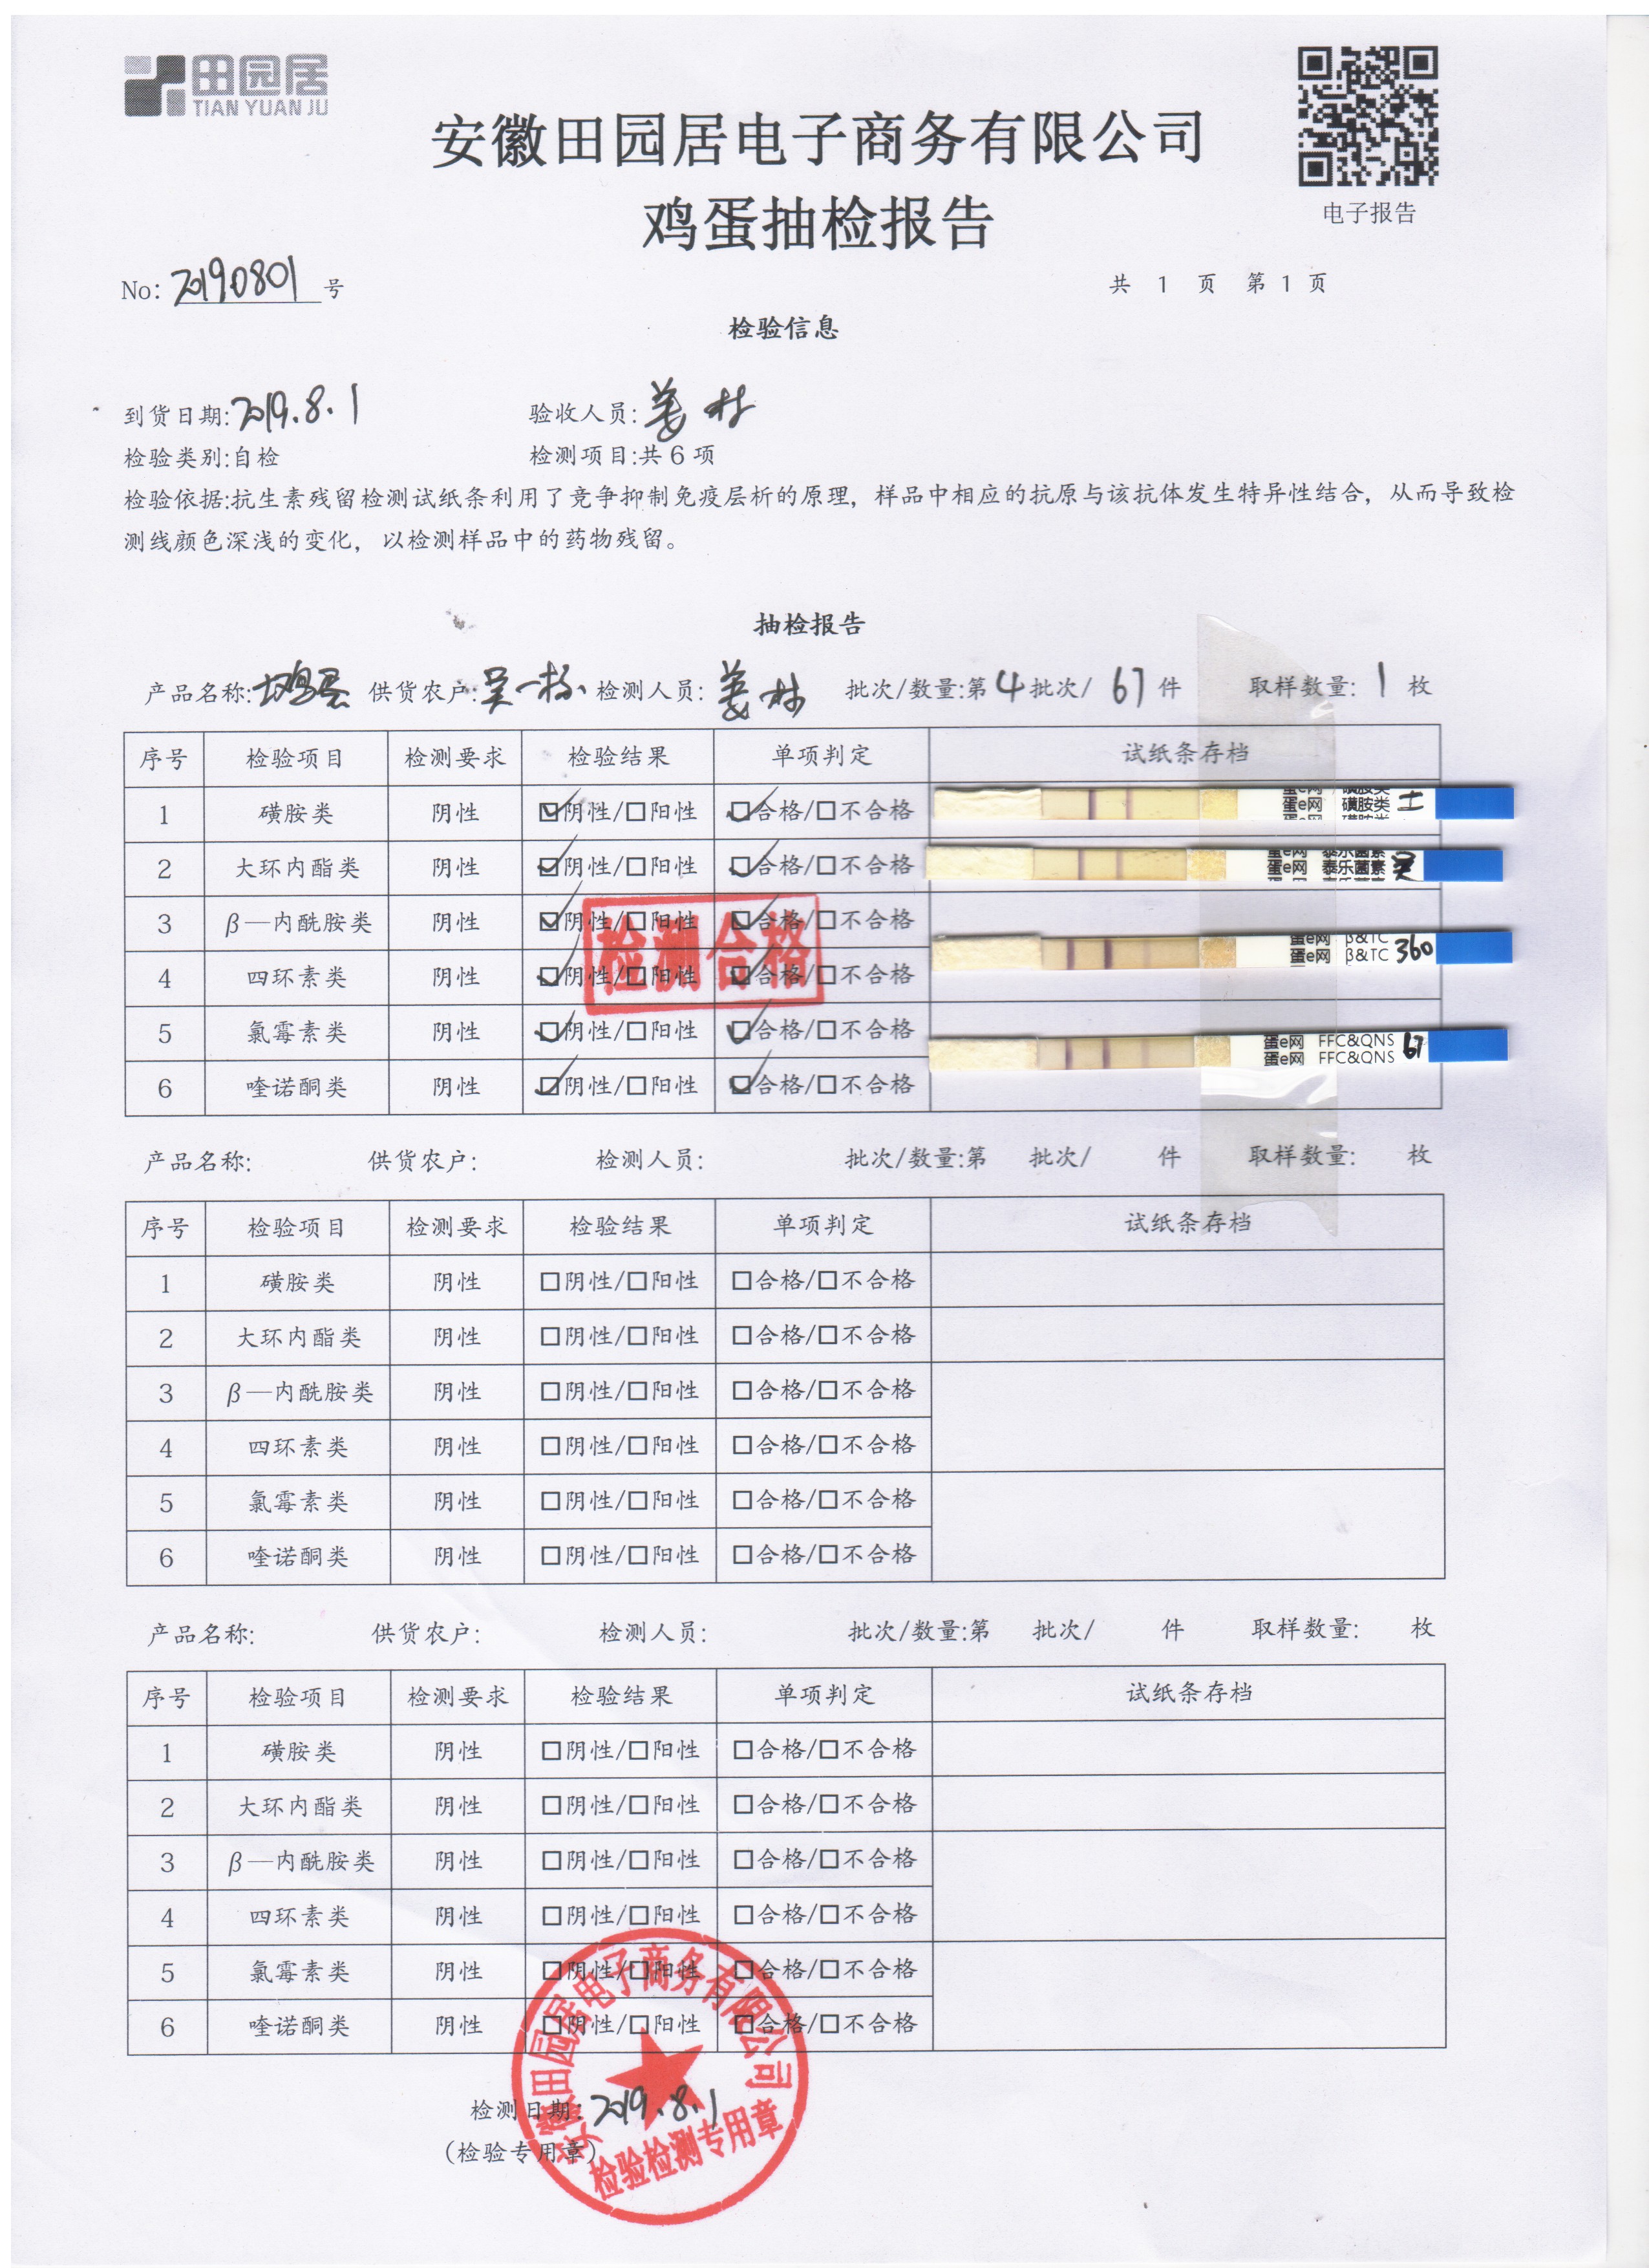 田园居
TIAN YUAN JU
安徽田园居电子商务有限公司
鸡蛋抽检报告
电子报告
No: 20190801 号
共 1 页 第 1 页
检验信息
到货日期:2019.8.1 验收人员:姜林
检验类别:自检 检测项目:共 6 项
检验依据:抗生素残留检测试纸条利用了竞争抑制免疫层析的原理，样品中相应的抗原与该抗体发生特异性结合，从而导致检
测线颜色深浅的变化，以检测样品中的药物残留。
抽检报告
产品名称:土鸡蛋 供货农户:吴一栋 检测人员:姜林 批次/数量:第 4 批次/ 67 件 取样数量: 1 枚
序号 检验项目 检测要求 检验结果 单项判定 试纸条存档
1 磺胺类 阴性 ☑阴性/☐阳性 ☑合格/☐不合格 蛋e网 磺胺类 土
2 大环内酯类 阴性 ☑阴性/☐阳性 ☑合格/☐不合格 蛋e网 泰乐菌素 吴
3 β—内酰胺类 阴性 ☑阴性/☐阳性 ☑合格/☐不合格 蛋e网 β&TC
蛋e网 β&TC 360
4 四环素类 阴性 ☑阴性/☐阳性 ☑合格/☐不合格
检测合格
5 氯霉素类 阴性 ☑阴性/☐阳性 ☑合格/☐不合格 蛋e网 FFC&QNS 67
蛋e网 FFC&QNS
6 喹诺酮类 阴性 ☑阴性/☐阳性 ☑合格/☐不合格
产品名称: 供货农户: 检测人员: 批次/数量:第 批次/ 件 取样数量: 枚
序号 检验项目 检测要求 检验结果 单项判定 试纸条存档
1 磺胺类 阴性 ☐阴性/☐阳性 ☐合格/☐不合格
2 大环内酯类 阴性 ☐阴性/☐阳性 ☐合格/☐不合格
3 β—内酰胺类 阴性 ☐阴性/☐阳性 ☐合格/☐不合格
4 四环素类 阴性 ☐阴性/☐阳性 ☐合格/☐不合格
5 氯霉素类 阴性 ☐阴性/☐阳性 ☐合格/☐不合格
6 喹诺酮类 阴性 ☐阴性/☐阳性 ☐合格/☐不合格
产品名称: 供货农户: 检测人员: 批次/数量:第 批次/ 件 取样数量: 枚
序号 检验项目 检测要求 检验结果 单项判定 试纸条存档
1 磺胺类 阴性 ☐阴性/☐阳性 ☐合格/☐不合格
2 大环内酯类 阴性 ☐阴性/☐阳性 ☐合格/☐不合格
3 β—内酰胺类 阴性 ☐阴性/☐阳性 ☐合格/☐不合格
4 四环素类 阴性 ☐阴性/☐阳性 ☐合格/☐不合格
5 氯霉素类 阴性 ☐阴性/☐阳性 ☐合格/☐不合格
6 喹诺酮类 阴性 ☐阴性/☐阳性 ☐合格/☐不合格
安徽田园居电子商务有限公司
检测日期: 2019.8.1
(检验专用章)
检验检测专用章